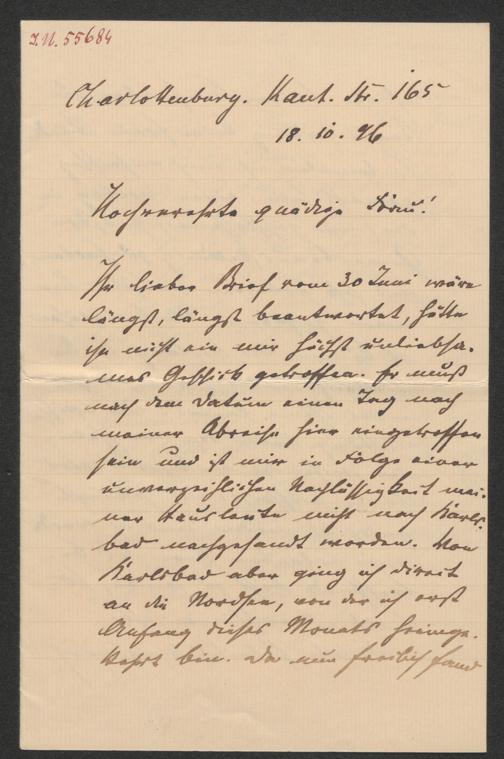 I.N. 55684
Charlottenburg. Kant. Str. 165
18. 10. 96
Hochverehrte gnädige Frau!
Ihr lieber Brief vom 30 Juni wäre
längst, längst beantwortet, hätte
ihn nicht ein mir höchst unliebsa-
mes Geschick getroffen. Er muß
nach dem Datum einen Tag nach
meiner Abreise hier eingetroffen
sein und ist mir in Folge einer
unverzeihlichen Nachlässigkeit mei-
ner Hausleute nicht nach Karls-
bad nachgesandt worden. Von
Karlsbad aber ging ich direct
an die Nordsee, von der ich erst
Anfang dieses Monats heimge-
kehrt bin. Da nun freilich fand